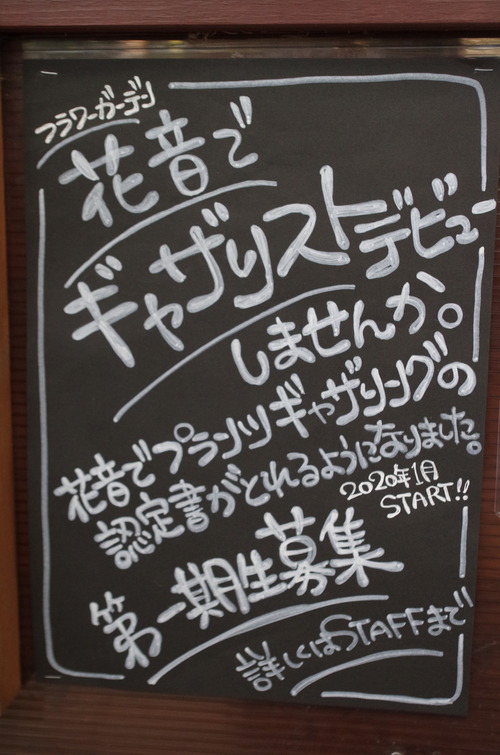 フラワーガーデン
花音で
ギャザリストデビュー
しませんか。
花音でプランツギャザリングの
認定書がとれるようになりました。
2020年1月
START!!
第一期生募集
詳しくはSTAFFまで